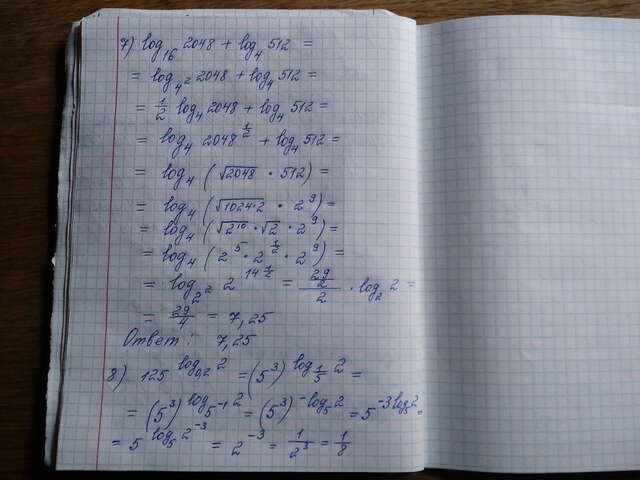 7) log₁₆ 2048 + log₄ 512 =
= log₄² 2048 + log₄ 512 =
= 1/2 log₄ 2048 + log₄ 512 =
= log₄ 2048^(1/2) + log₄ 512 =
= log₄ (√2048 · 512) =
= log₄ (√1024·2 · 2⁹) =
= log₄ (√2¹⁰ · √2 · 2⁹) =
= log₄ (2⁵ · 2^(1/2) · 2⁹) =
= log₂² 2^(14 1/2) = (29/2)/2 · log₂ 2 =
= 29/4 = 7,25
Ответ: 7,25
8) 125^(log₀,₂ 2) = (5³)^(log_(1/5) 2) =
= (5³)^(log₅₋₁ 2) = (5³)^(-log₅ 2) = 5^(-3 log₅ 2) =
= 5^(log₅ 2⁻³) = 2⁻³ = 1/2³ = 1/8